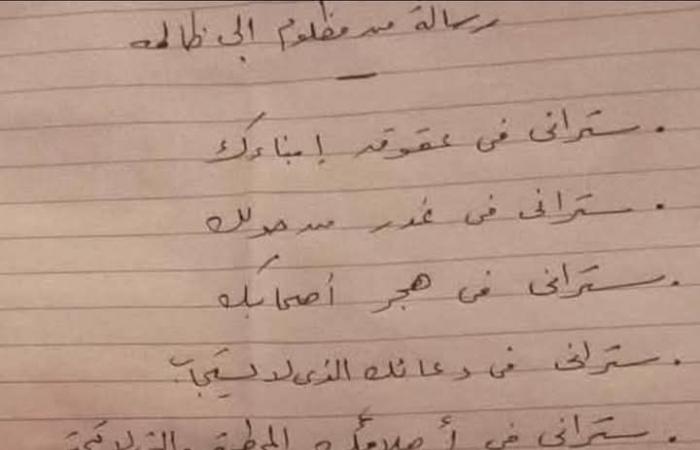 رسالة من مظلوم إلى ظالمه
. ستراني في عقوق إبناءك
. ستراني في غدر من حولك
. ستراني في هجر أصحابك
. ستراني في دعائك الذي لا يستجاب
. ستراني في أحلامك